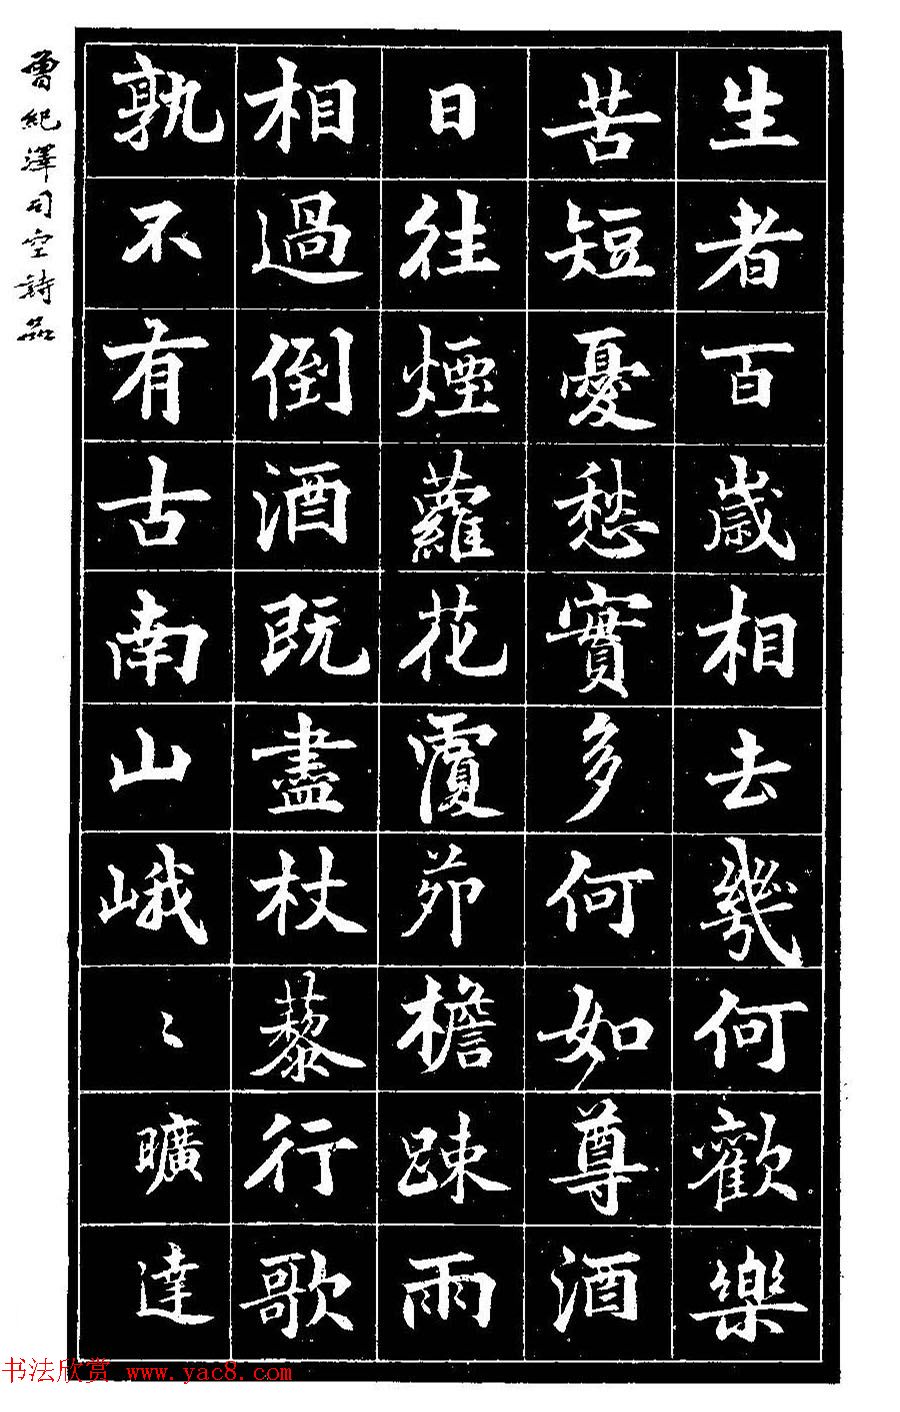 生者百歲相去幾何歡樂
苦短憂愁實多何如尊酒
日往煙蘿花覆茆檐疎雨
相過倒酒既盡杖藜行歌
孰不有古南山峨〻曠達
曾紀澤司空詩品
书法欣赏 www.yac8.com